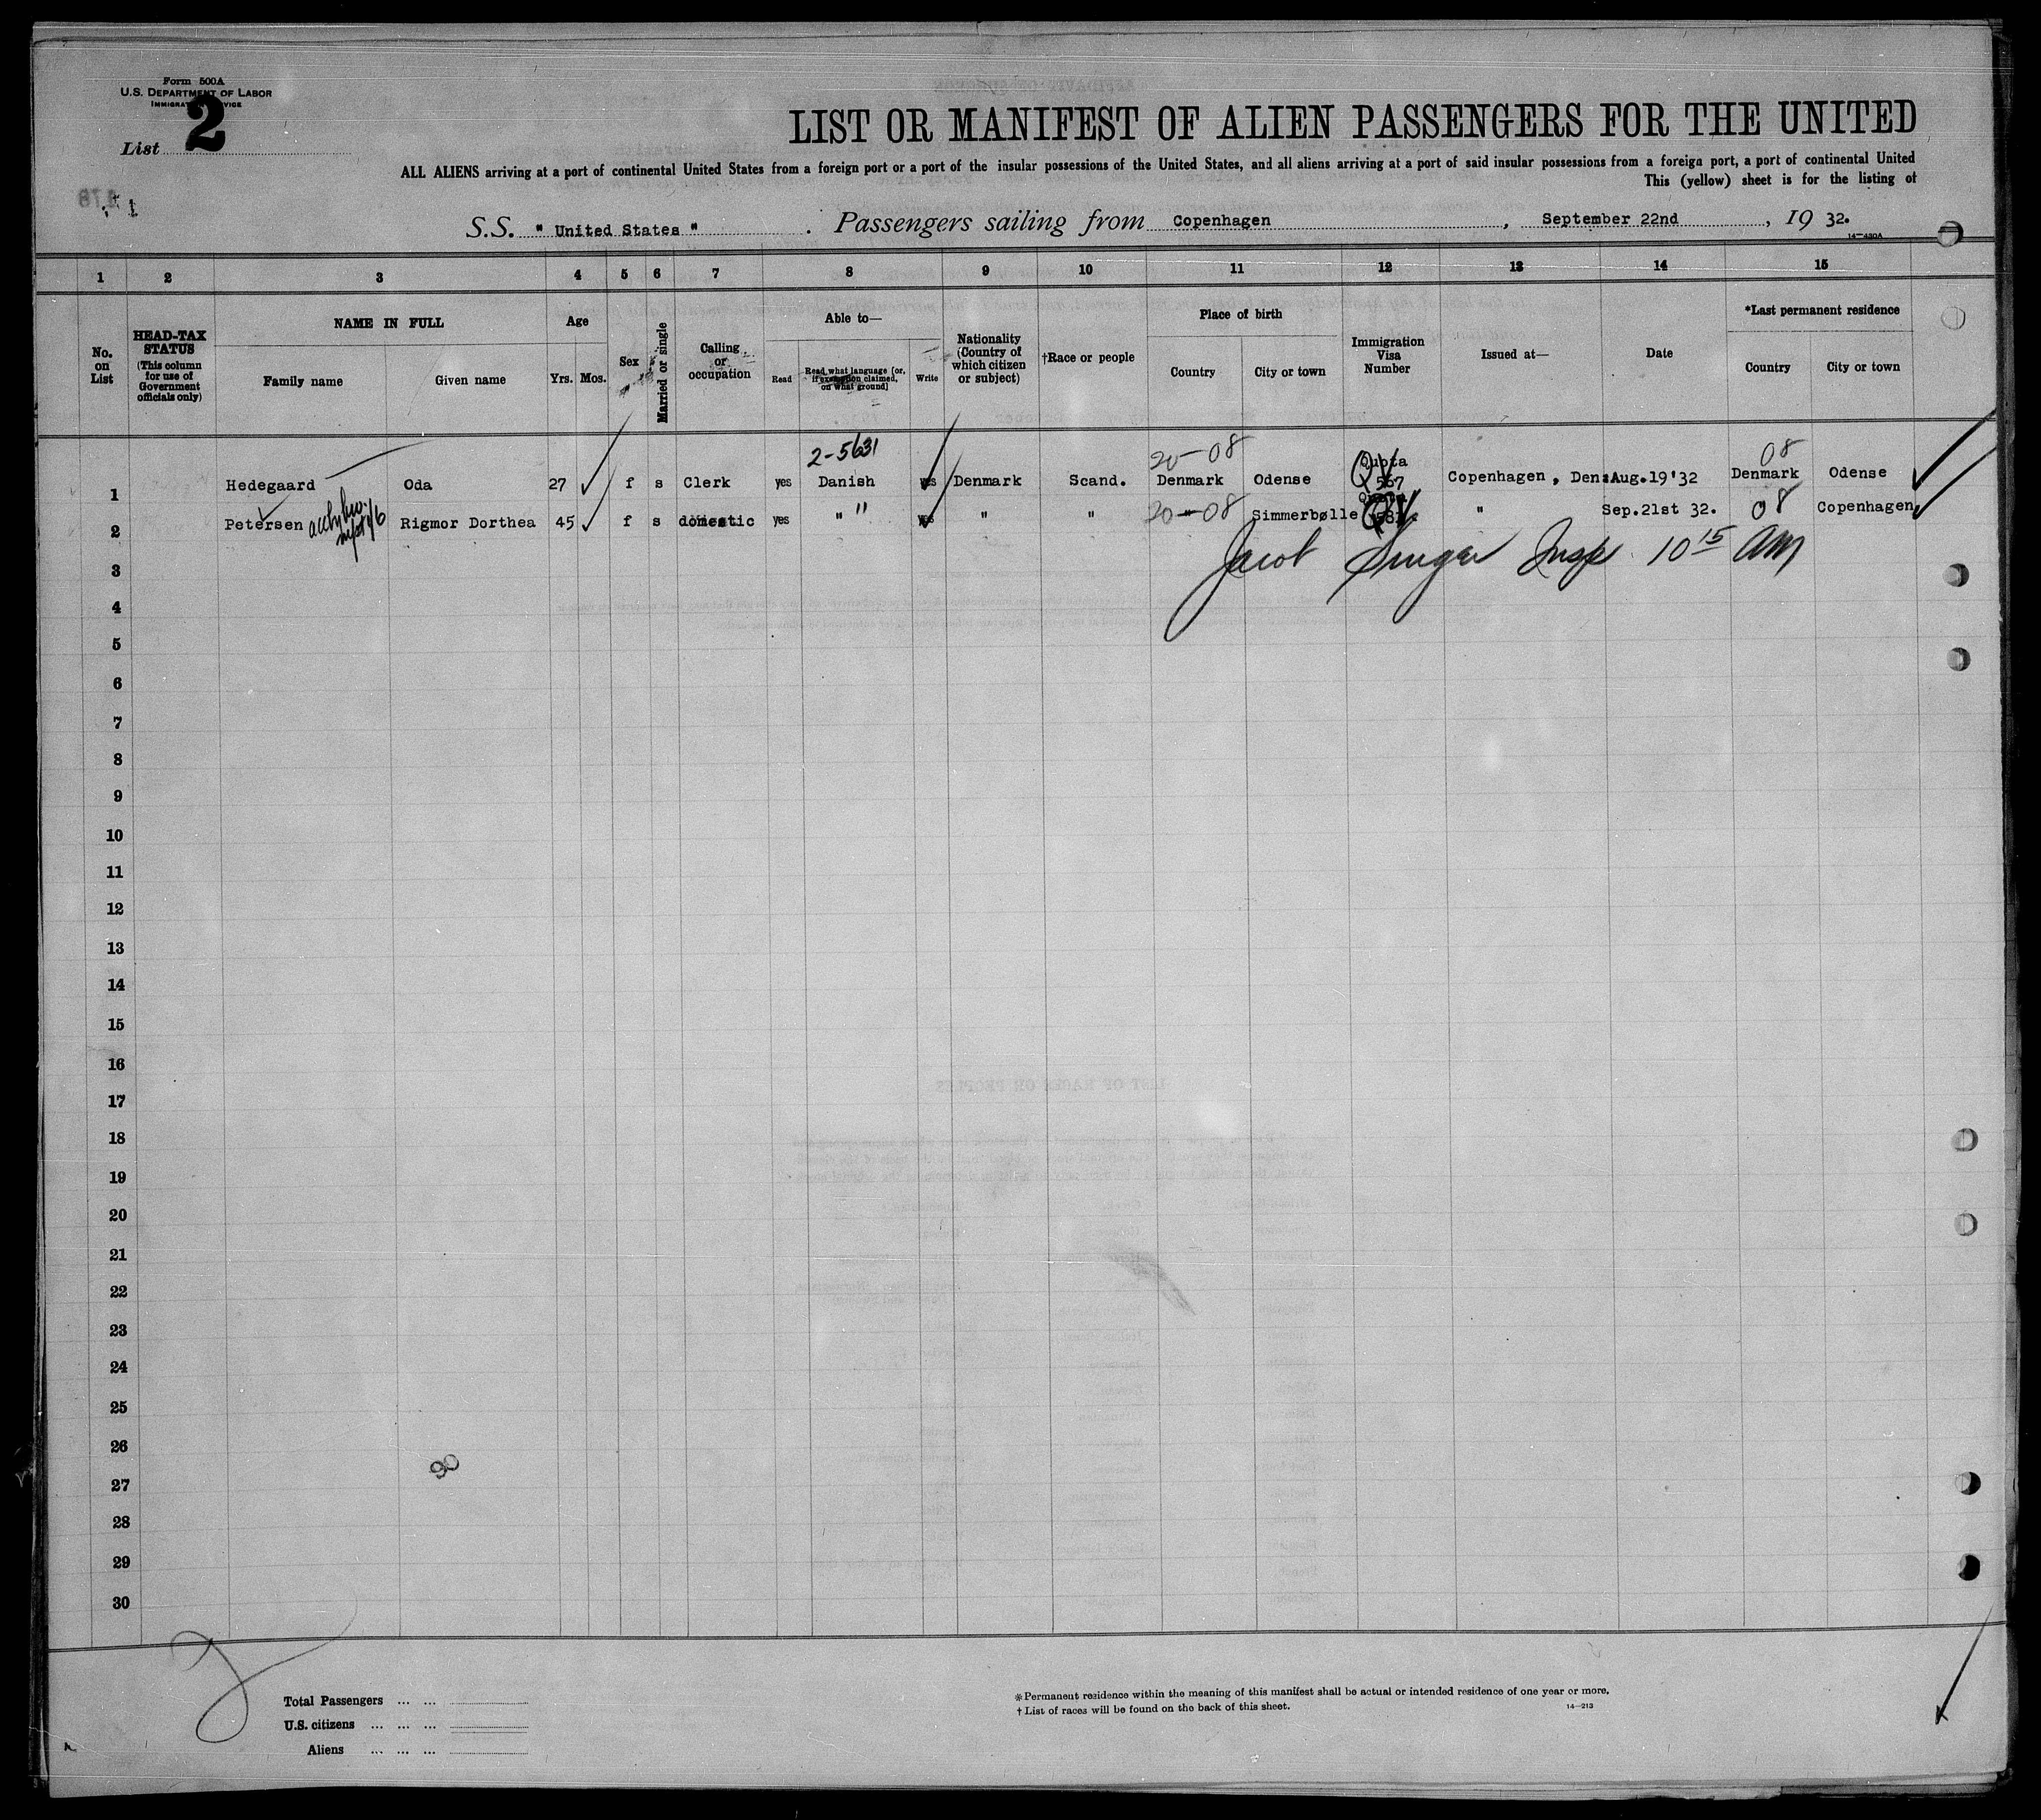 Form 500A
U.S. DEPARTMENT OF LABOR
List 2
LIST OR MANIFEST OF ALIEN PASSENGERS FOR THE UNITED
ALL ALIENS arriving at a port of continental United States from a foreign port or a port of the insular possessions of the United States, and all aliens arriving at a port of said insular possessions from a foreign port, a port of continental United
This (yellow) sheet is for the listing of
S.S. " United States " . Passengers sailing from Copenhagen , September 22nd , 19 32.
14—430A
1 2 3 4 5 6 7 8 9 10 11 12 13 14 15
No. on List
HEAD-TAX STATUS (This column for use of Government officials only)
NAME IN FULL
Family name Given name
Age
Yrs. Mos.
Sex
Married or single
Calling or occupation
Able to—
Read Read what language [or, if exemption claimed, on what ground] Write
Nationality (Country of which citizen or subject)
†Race or people
Place of birth
Country City or town
Immigration Visa Number
Issued at—
Date
*Last permanent residence
Country City or town
2-5631 20-08 08
1 Hedegaard Oda 27 f s Clerk yes Danish yes Denmark Scand. Denmark Odense Quota QV 567 Copenhagen, Den: Aug.19'32 Denmark Odense
2 Petersen Rigmor Dorthea 45 f s domestic yes " " yes " " 20-08 " Simmerbølle QV " Sep.21st 32. 08 Copenhagen
Jacob Insp. 10 15 am
3
4
5
6
7
8
9
10
11
12
13
14
15
16
17
18
19
20
21
22
23
24
25
26
27
28
29
30
Total Passengers ... ...
U.S. citizens ... ... ...
Aliens ... ... ...
*Permanent residence within the meaning of this manifest shall be actual or intended residence of one year or more.
† List of races will be found on the back of this sheet. 14—213